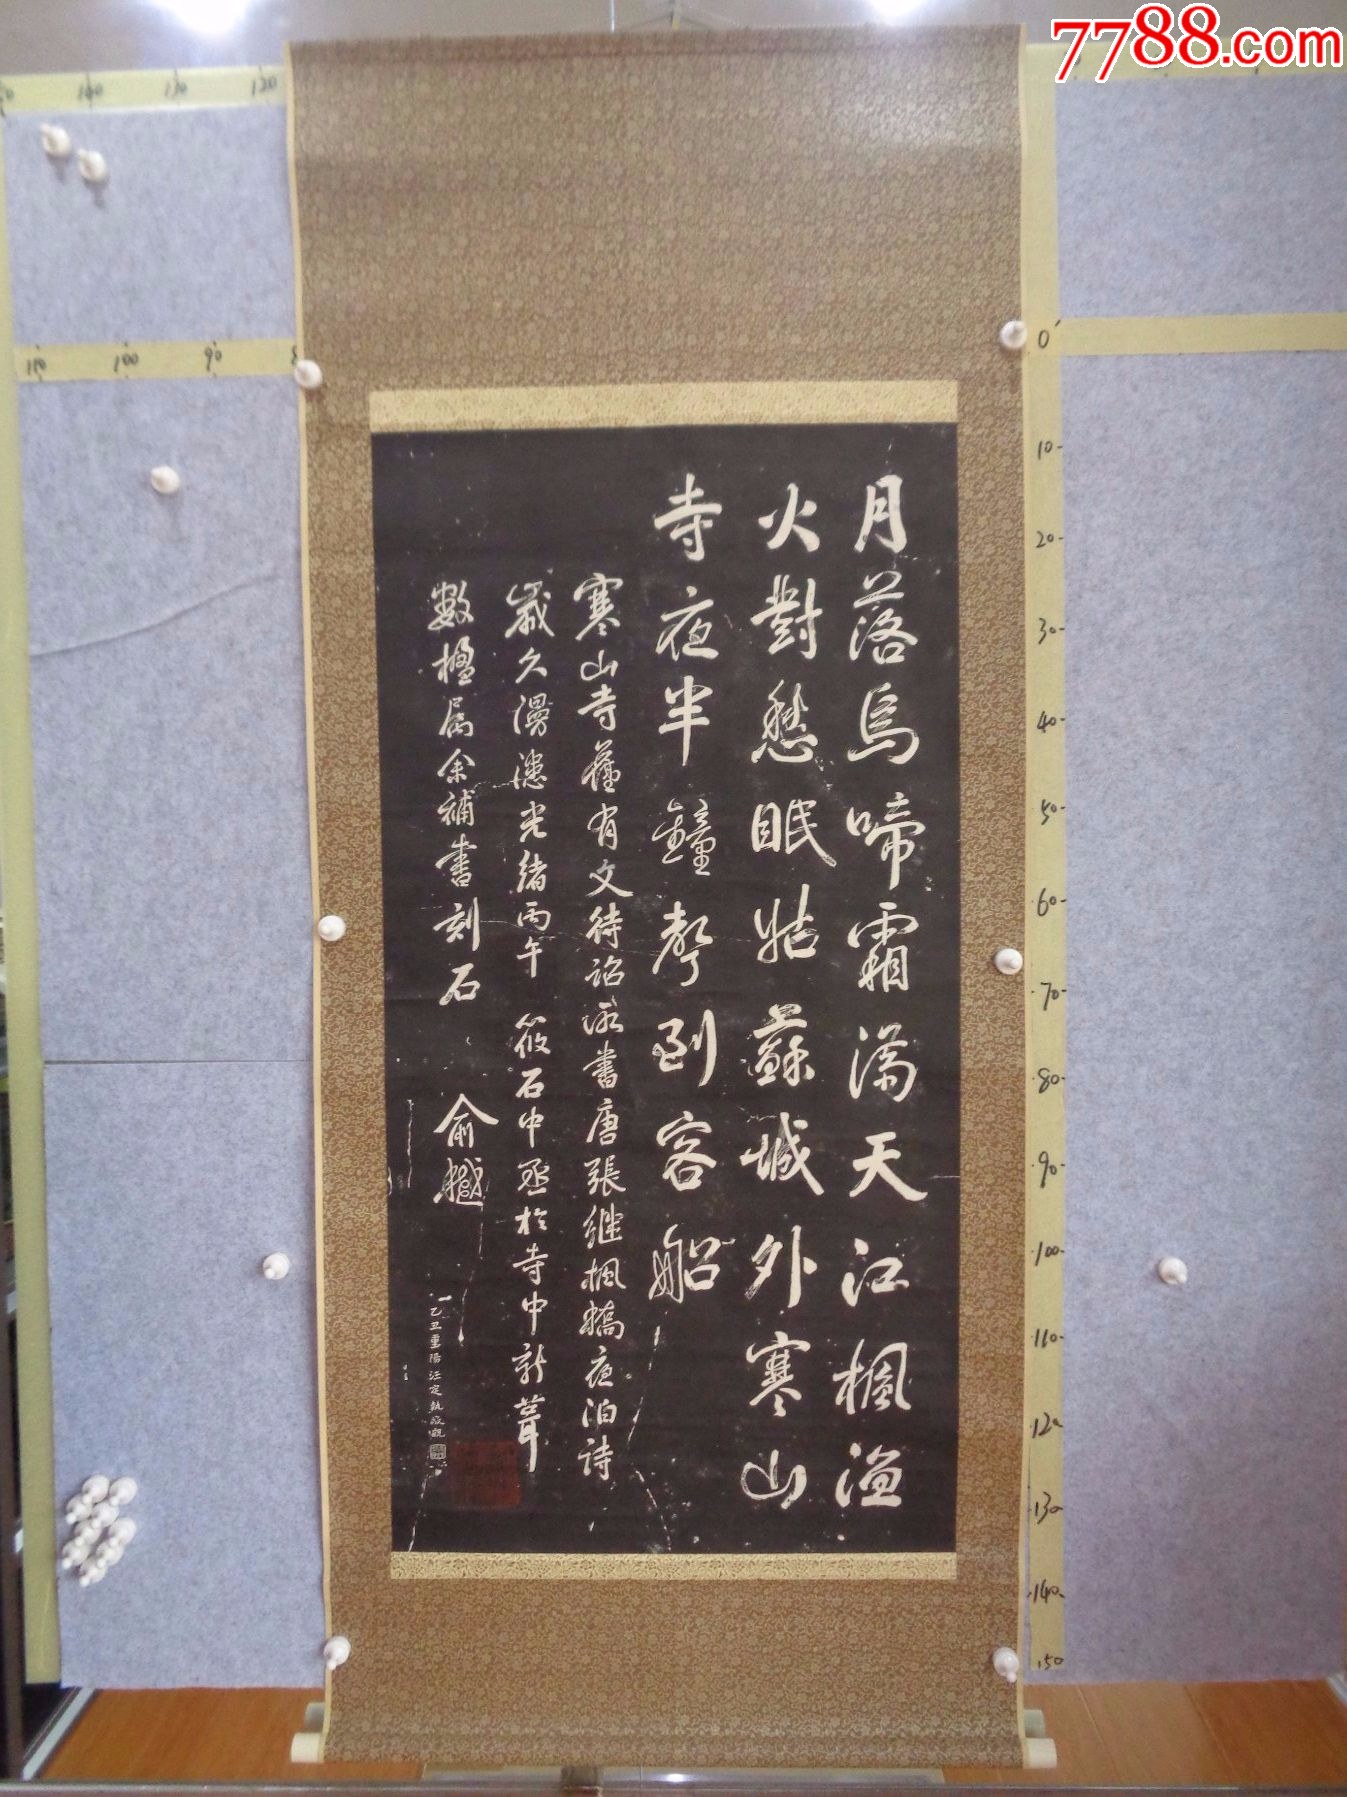 7788.com
月落烏啼霜满天江楓漁
火對愁眠姑蘇城外寒山
寺夜半鐘聲到客船
寒山寺舊有文待詔所書唐張継楓橋夜泊詩
歲久漫漶光緒丙午筱石中丞於寺中新葺
數楹属余補書刻石 俞樾
乙丑重陽汪定執敬觀
120
110
100
110
100
90
0
10
20
30
40
50
60
70
80
90
100
110
120
130
140
150